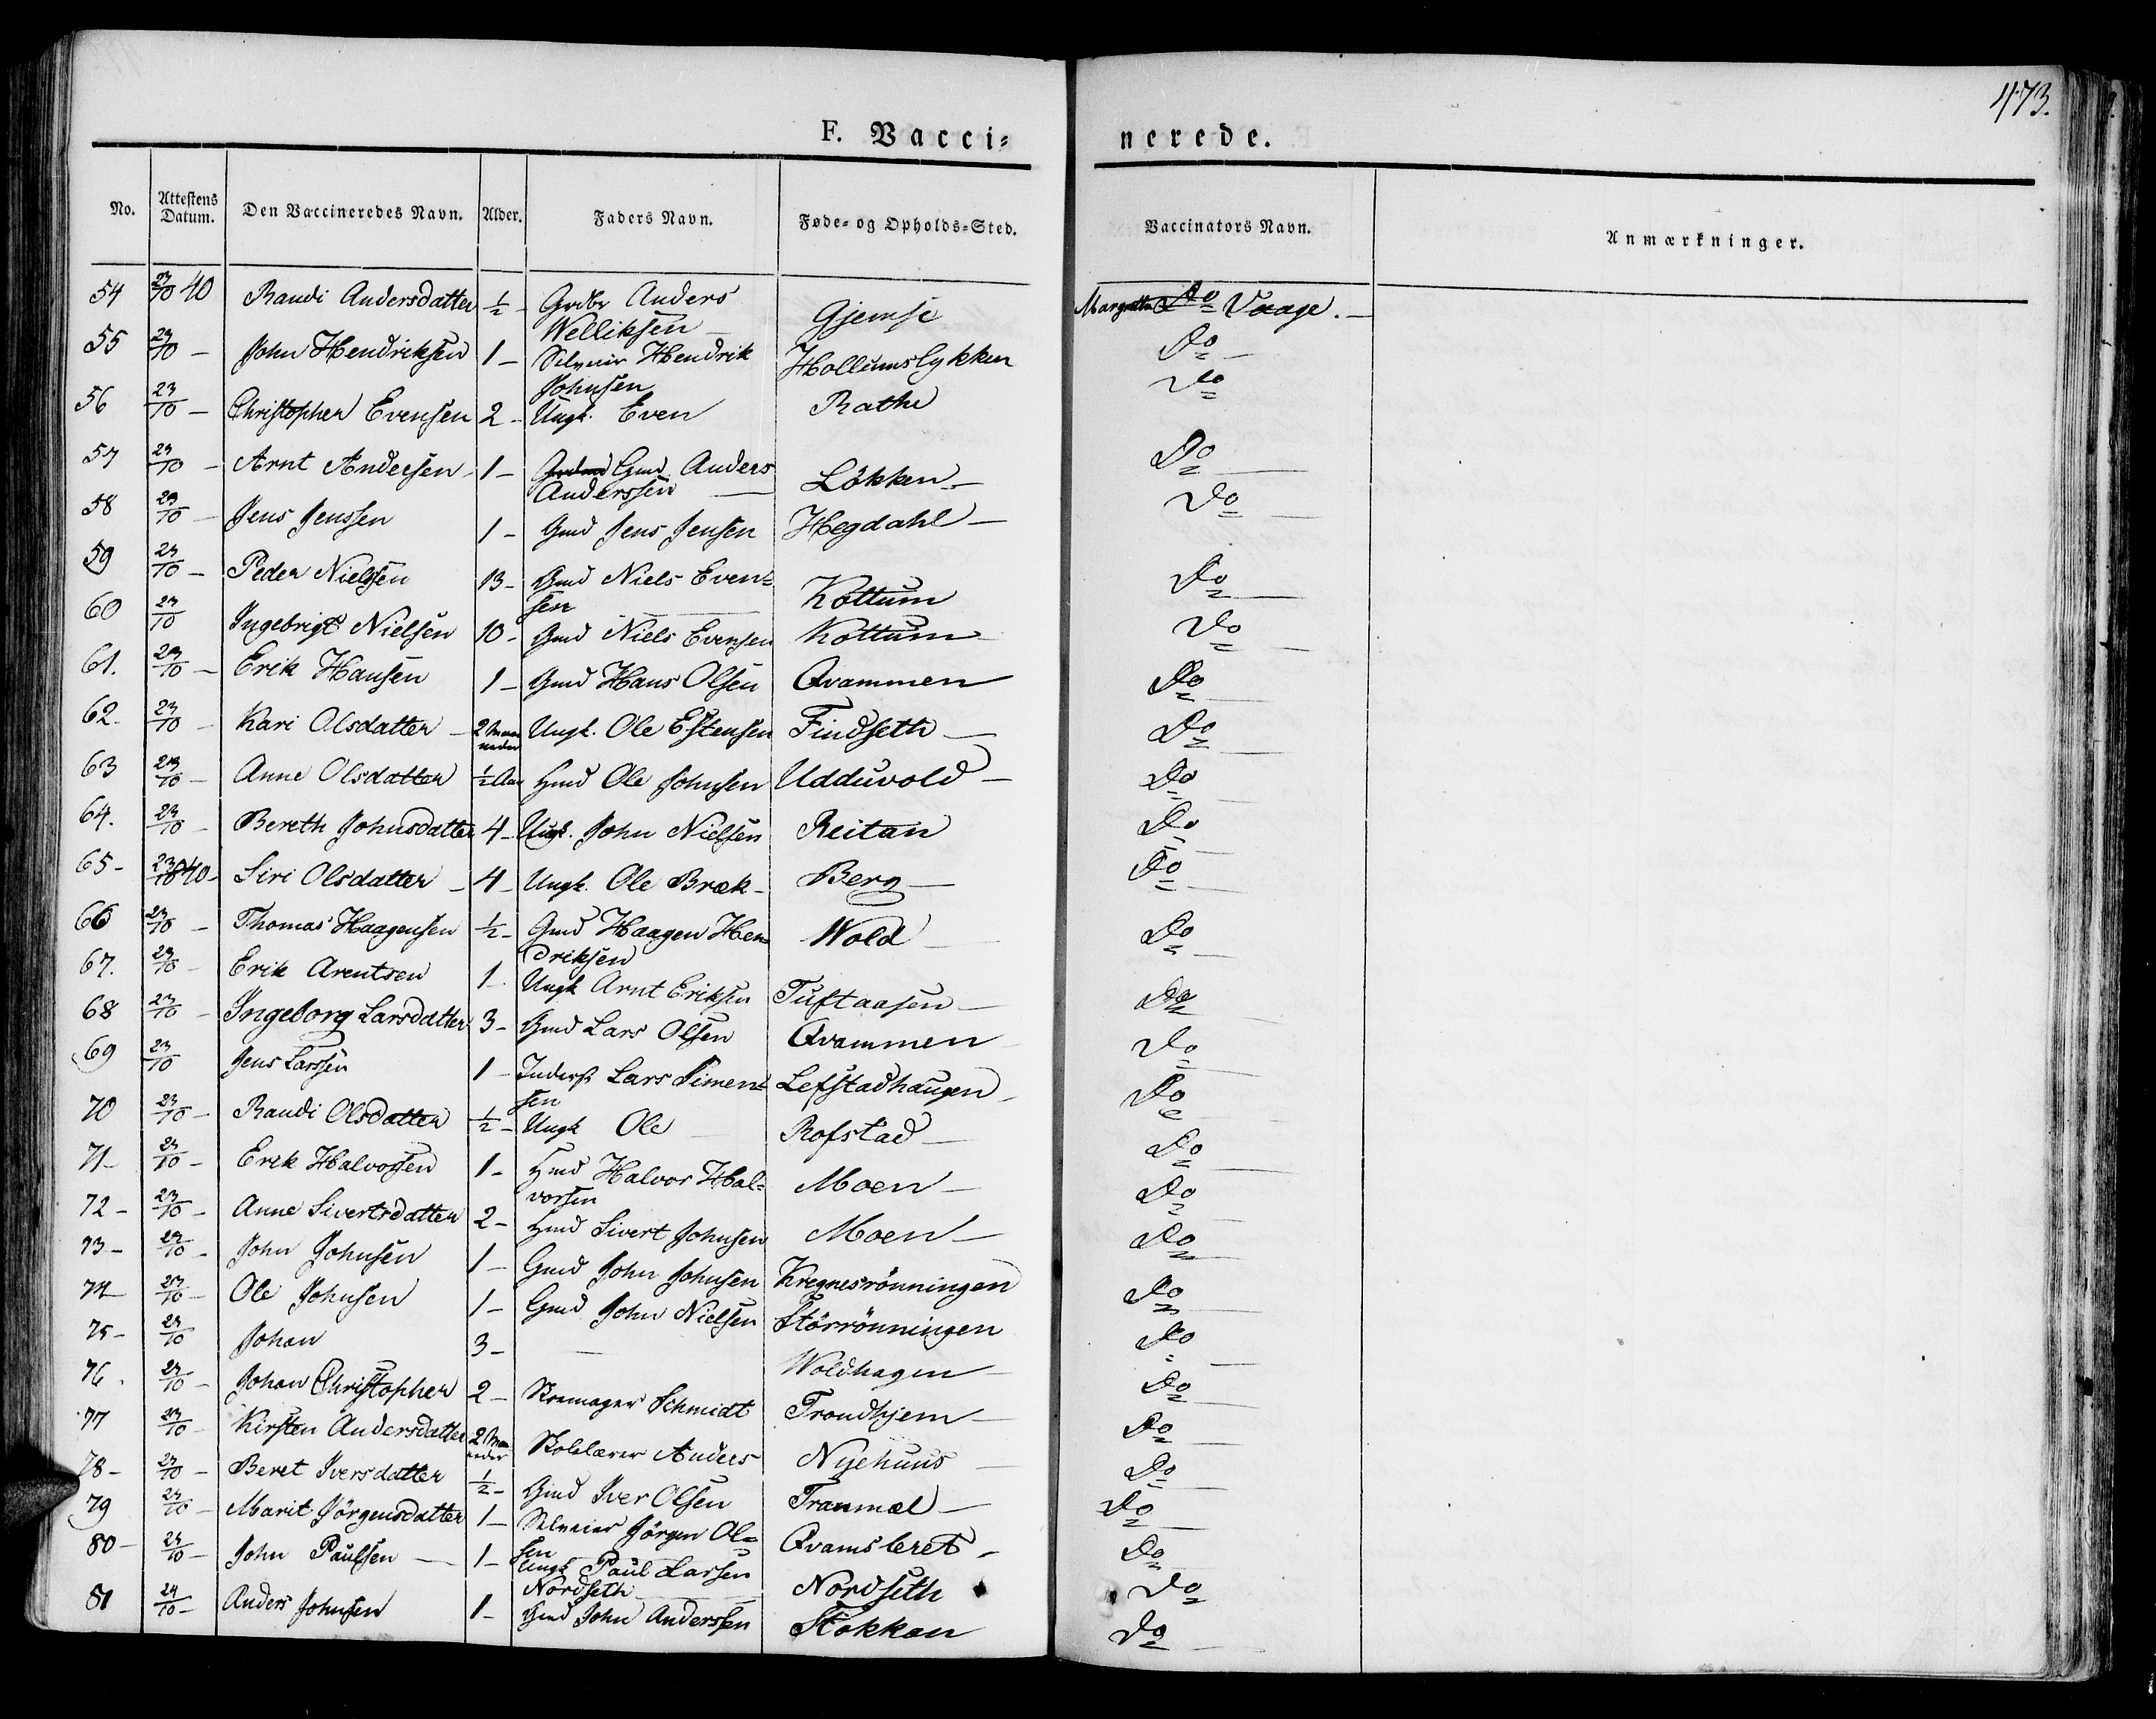 473.
F. Vacci= nerede.
No. Attestens Datum. Den Vaccineredes Navn. Alder. Faders Navn. Føde= og Opholds=Sted. Vaccinators Navn. Anmærkninger.
54 23/10 40 Randi Andersdatter ½ - Grdbr Anders Gjemse Margrethe Do Vaage. -
Welliksen -
55 23/10 - John Hendriksen 1 - Selveier Hendrik Hollumslykken Do -
Johnsen
56 23/10 - Christopher Evensen 2 - Ungk. Even Rathe Do
57 23/10 - Arnt Andersen - 1 - Gmd Anders Løkken - Do -
Anderssen -
58 23/10 - Jens Jenssen 1 - Gmd Jens Jensen Hegdahl - Do -
59 23/10 - Peder Nielsen 13 - Gmd Niels Even= Kottum Do -
sen
60 23/10 Ingebrigt Nielsen 10 - Gmd Niels Evensen Kottum Do -
61. 23/10 - Erik Hansen 1 - Gmd Hans Olsen Qvammen Do -
62 - 23/10 - Kari Olsdatter - 2 Maaneder Ungk. Ole Estensen Findseth - Do -
63 23/10 - Anne Olsdatter ½ Aar Hmd Ole Johnsen Udduvold - Do -
64. 23/10 - Bereth Johnsdatter 4 - Ungk. John Nielsen Reitan Do -
65 - 23/10 40 - Siri Olsdatter - 4 - Ungk. Ole Bræk - Berg - Do -
66 23/10 - Thomas Haagensen ½ - Gmd Haagen Hen= Wold - Do -
driksen
67. 23/10 - Erik Arentsen 1 - Ungk Arnt Eriksen Tuftaasen - Do -
68 23/10 - Ingeborg Larsdatter 3 - Gmd Lars Olsen Qvammen Do -
69 23/10 Jens Larssen 1 - Inderst Lars Simen= Lefstadhaugen - Do -
sen
70 23/10 - Randi Olsdatter ½ - Ungk Ole - Rofstad - Do -
71 - 23/10 - Erik Halvorsen 1 - Hmd Halvor Hal= Moen - Do -
vorsen
72 - 23/10 - Anne Sivertsdatter 2 - Hmd Sivert Johnsen Moen - Do -
73 - 23/10 - John Johnsen 1 - Gmd John Johnsen Kregnesrönningen Do -
74 - 23/10 - Ole Johnsen 1 - Gmd John Nielsen Störrönningen Do -
75 - 23/10 Johan 3 - - Woldhagen - Do -
76. 23/10 - Johan Christopher 2 - Skomager Schmidt Trondhjem - Do -
77 23/10 - Kirsten Andersdatter 2 Maaneder Skolelærer Anders Nyehuus - Do -
78 - 23/10 - Beret Iversdatter ½ - Gmd Iver Olsen Tranmæl - Do -
79 23/10 - Marit Jörgensdatter 1 - Selveier Jörgen Ol= Qvamsleret - Do -
sen
80 - 23/10 - John Paulsen - 1 - Ungk Paul Larsen Nordseth Do
Nordseth -
81 24/10 - Anders Johnsen 1 - Gmd John Anderssen Stokkan Do -